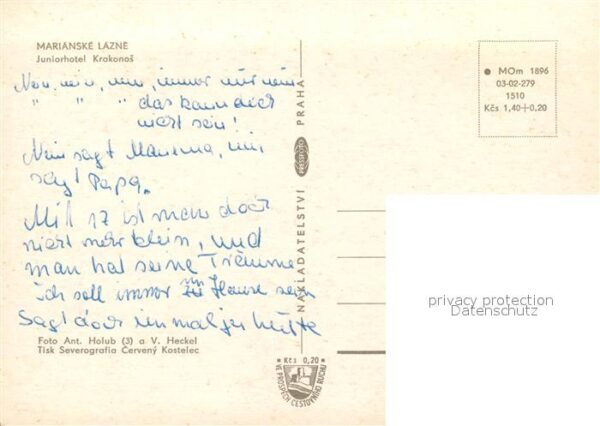 MARIÁNSKÉ LÁZNĚ
Juniorhotel Krakonoš
Nein, nein, nein, immer nur nein
" " " das kann doch
nicht sein!
Nein sagt Mamma, nein
sagt Papa.
Mit 17 ist man doch
nicht mehr klein, und
man hat seine Träume
ich soll immer zu Hause sein
Sagt doch einmal ja heute
Foto Ant. Holub (3) a V. Heckel
Tisk Severografia Červený Kostelec
NAKLADATELSTVÍ PRESSFOTO PRAHA
Kčs 0,20
VE PROSPĚCH CESTOVNÍHO RUCHU
MOm 1896
03-02-279
1510
Kčs 1,40+0,20
privacy protection
Datenschutz